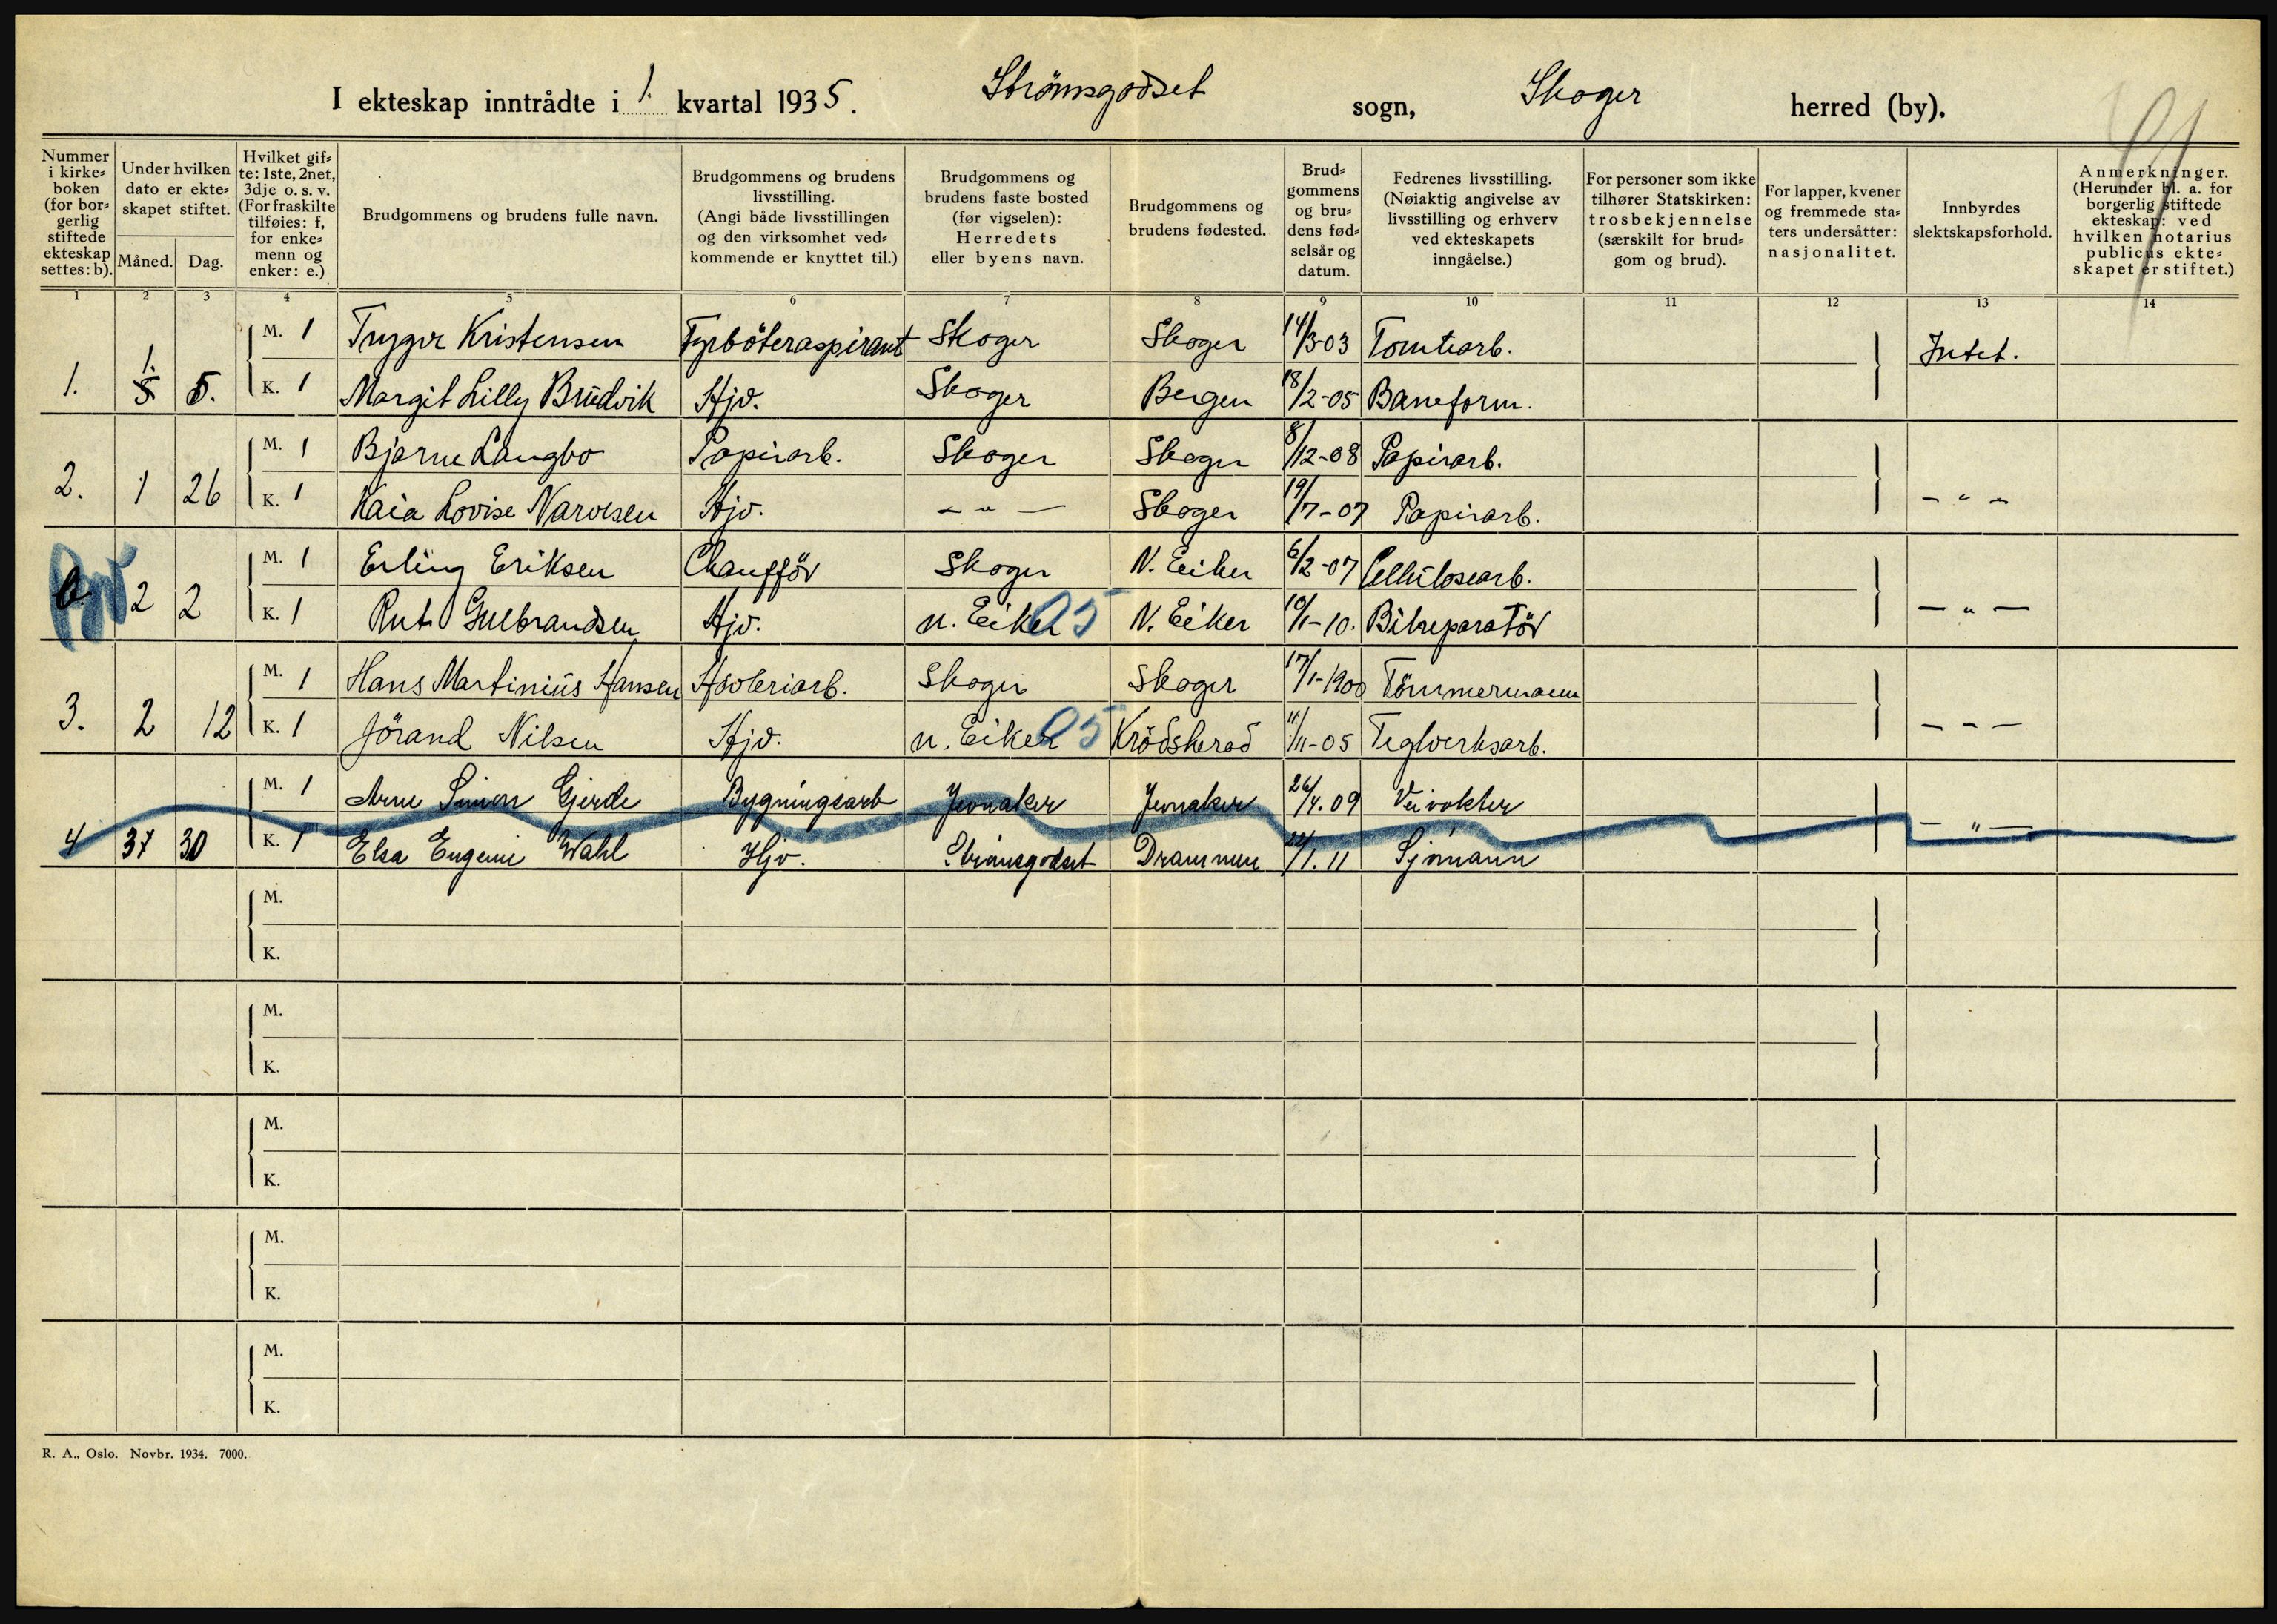 I ekteskap inntrådte i 1. kvartal 1935. Strömsgodset sogn, Skoger herred (by).
Nummer i kirke= boken (for bor= gerlig stiftede ekteskap settes: b).
Under hvilken dato er ekte= skapet stiftet.
Måned.
Dag.
Hvilket gif= te: 1ste, 2net, 3dje o. s. v. (For fraskilte tilføies: f, for enke= menn og enker: e.)
Brudgommens og brudens fulle navn.
Brudgommens og brudens livsstilling. (Angi både livsstillingen og den virksomhet ved= kommende er knyttet til.)
Brudgommens og brudens faste bosted (før vigselen): Herredets eller byens navn.
Brudgommens og brudens fødested.
Brud= gommens og bru= dens fød= selsår og datum.
Fedrenes livsstilling. (Nøiaktig angivelse av livsstilling og erhverv ved ekteskapets inngåelse.)
For personer som ikke tilhører Statskirken: trosbekjennelse (særskilt for brud= gom og brud).
For lapper, kvener og fremmede sta= ters undersåtter: nasjonalitet.
Innbyrdes slektskapsforhold.
Anmerkninger. (Herunder bl. a. for borgerlig stiftede ekteskap: ved hvilken notarius publicus ekte= skapet er stiftet.)
1 2 3 4 5 6 7 8 9 10 11 12 13 14
M. 1 Trygve Kristensen Fyrböteraspirant Skoger Skoger 14/3-03 Tomtearb. Intet.
1. 1. 5. K. 1 Margit Lilly Brudvik Hjv. Skoger Bergen 18/2-05 Baneform.
M. 1 Bjarne Langbo Papirarb. Skoger Skoger 8/12-08 Papirarb.
2. 1 26 K. 1 Kaia Lovise Narvesen Hjv. – " – Skoger 19/7-07 Papirarb. – " –
M. 1 Erling Eriksen Chafför Skoger N. Eiker 6/2-07 Cellulosearb.
b. 2 2 K. 1 Rut Gulbrandsen Hjv. N. Eiker N. Eiker 10/1-10. Bilreparatör – " –
M. 1 Hans Martinius Hansen Høvleriarb. Skoger Skoger 17/1-1900 Tömmermann
3. 2 12 K. 1 Jörand Nilsen Hjv. N. Eiker Krödsherad 11/11-05 Teglverksarb. – " –
M. 1 Arne Simon Gjerde Bygningsarb Jevnaker Jevnaker 26/4.09 Veivokter
4 3 30 K. 1 Elsa Eugenie Wahl Hjv. Strömsgodset Drammen 22/1.11 Sjømann – " –
M.
K.
M.
K.
M.
K.
M.
K.
M.
K.
R. A., Oslo. Novbr. 1934. 7000.